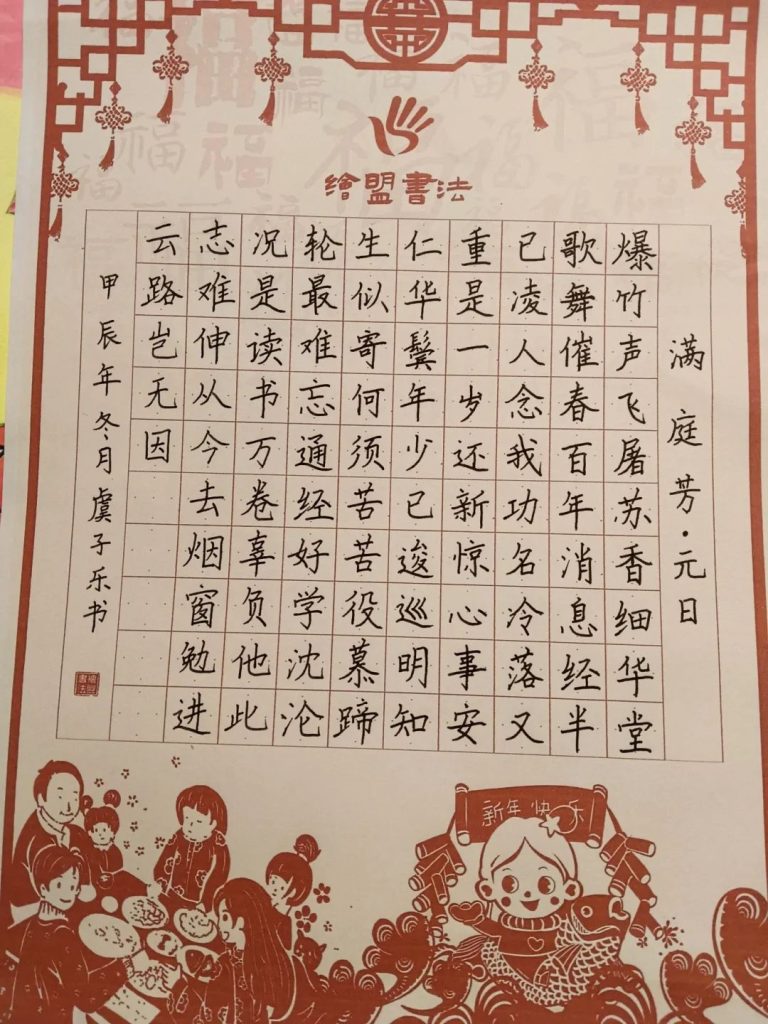 繪盟書法
满庭芳·元日
爆竹声飞屠苏香细华堂
歌舞催春百年消息经半
已凌人念我功名冷落又
重是一岁还新惊心事安
仁华鬓年少已逡巡明知
生似寄何须苦苦役慕蹄
轮最难忘通经好学沈沦
况是读书万卷辜负他此
志难伸从今去烟窗勉进
云路岂无因
甲辰年冬月虞子乐书
繪盟書法
新年快乐